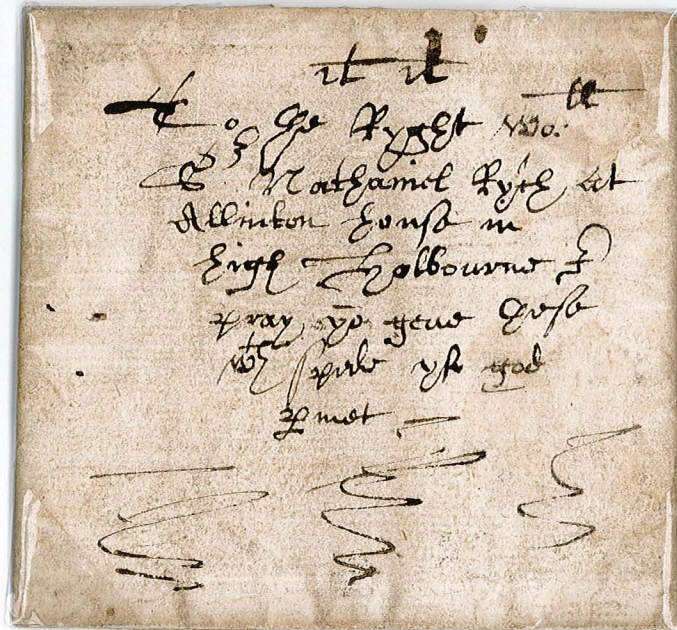 To the Ryght wo:ll
Sr Nathaniel Rych at
Allinton house in
high Holbourne I
pray yo geue these
wth spede yf god
pmet